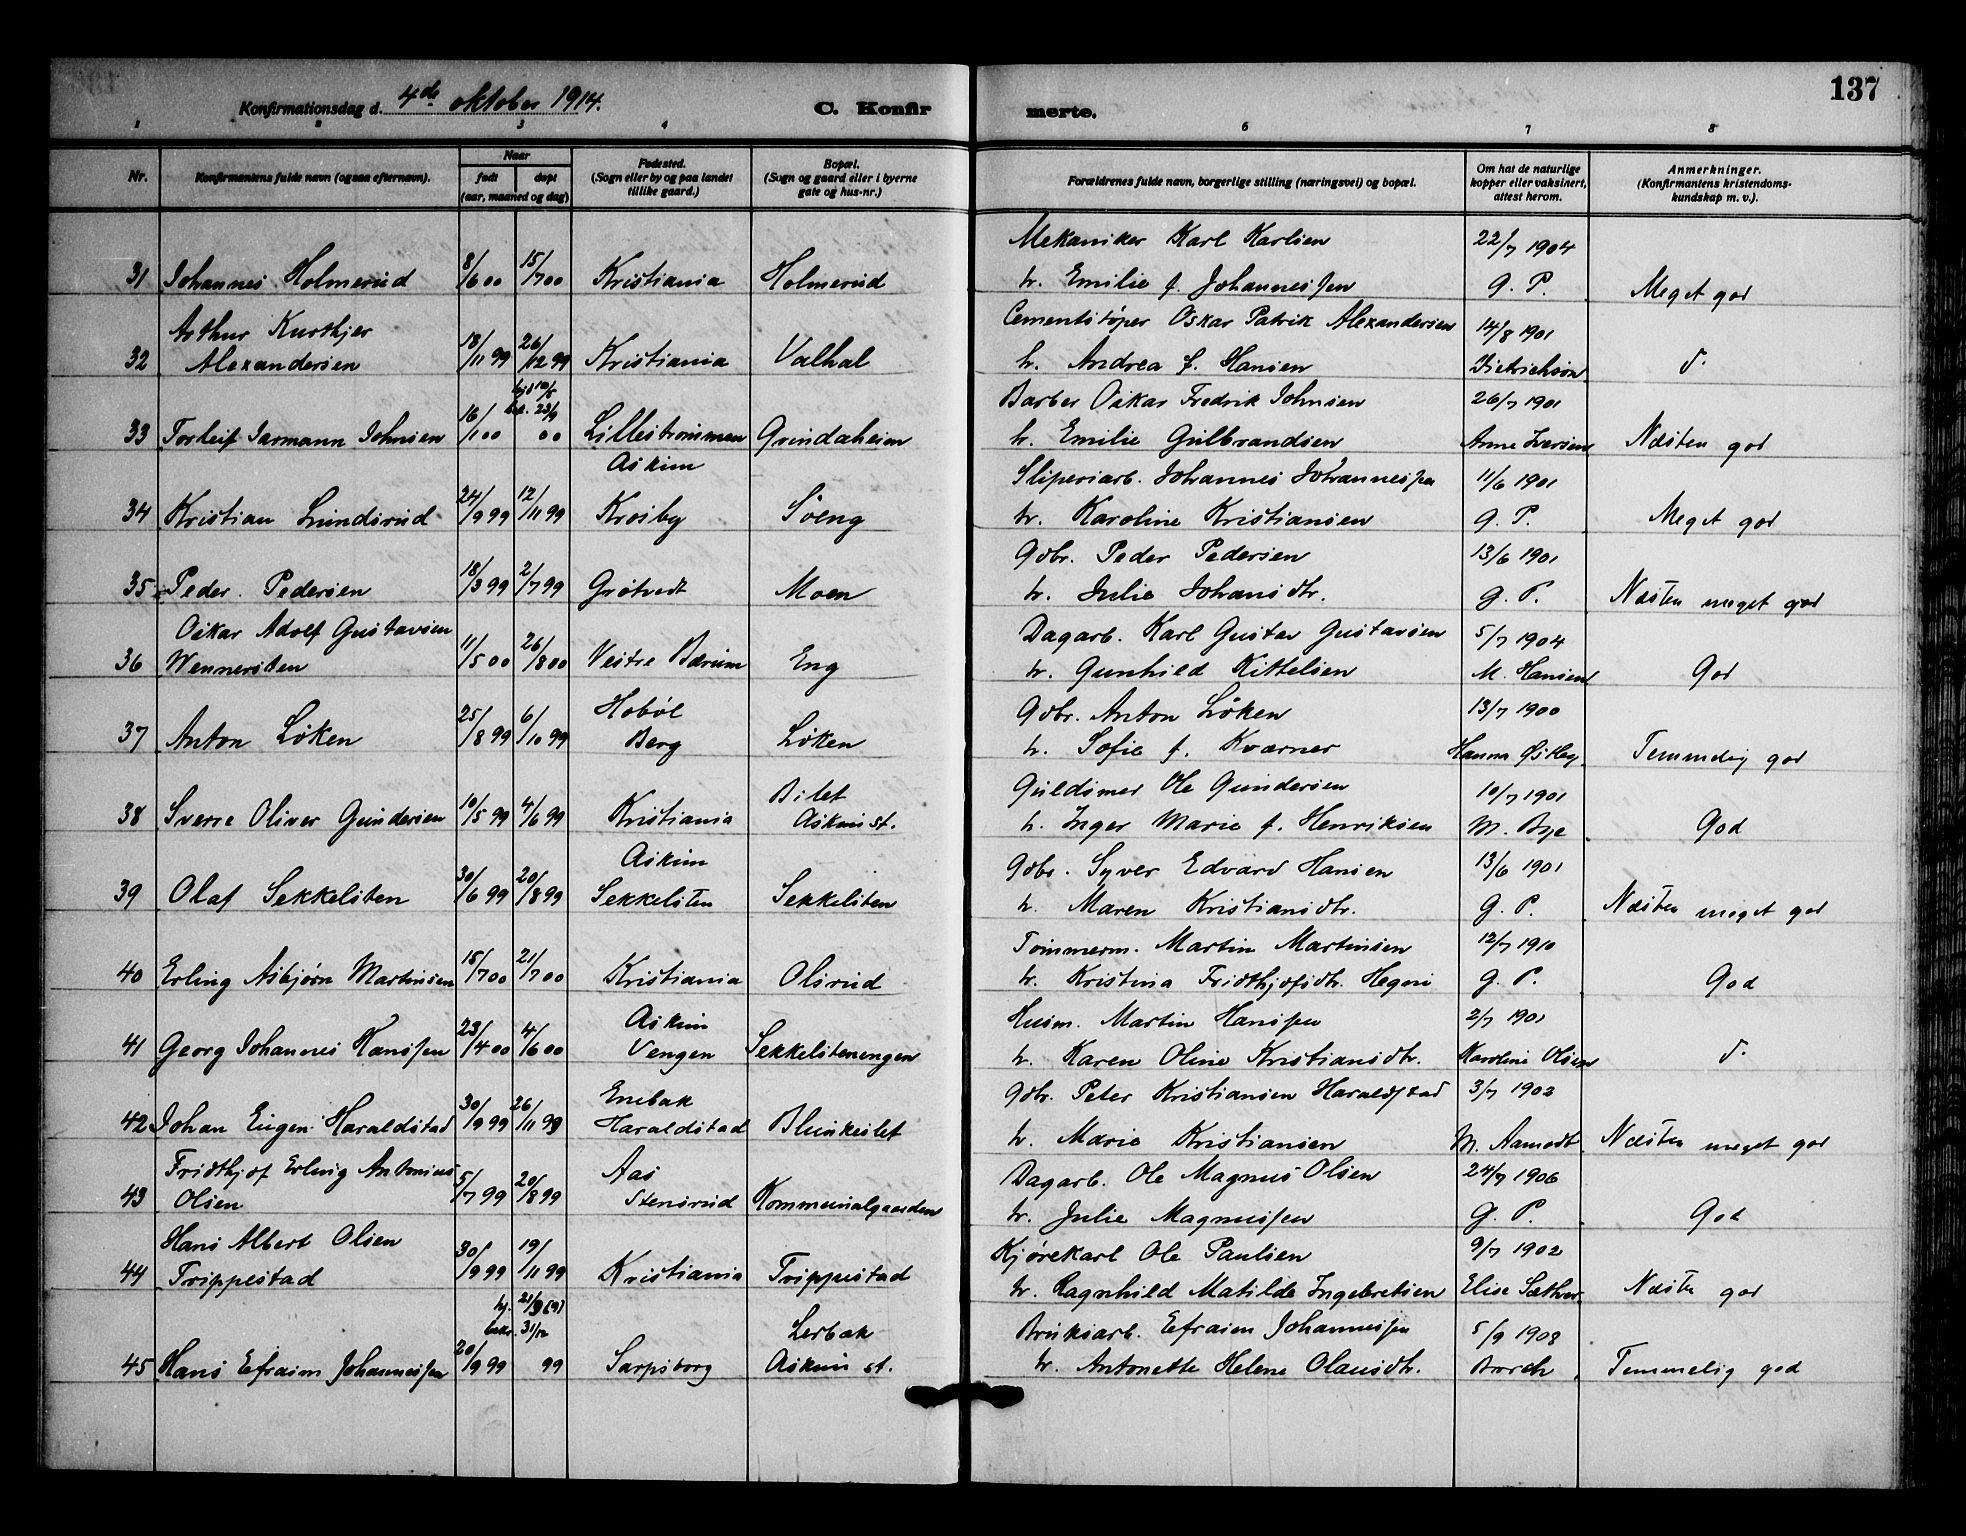 137
Konfirmationsdag d. 4de oktober 1914.
C. Konfir merte.
1 2 3 4 6 7 8
Nr.
Konfirmantens fulde navn (og saa efternavn).
Naar
født
døpt
(aar, maaned og dag)
Fødested.
(Sogn eller by og paa landet
tillike gaard.)
Bopæl.
(Sogn og gaard eller i byerne
gate og hus-nr.)
Forældrenes fulde navn, borgerlige stilling (næringsvei) og bopæl.
Om hat de naturlige
kopper eller vaksinert,
attest herom.
Anmerkninger.
(Konfirmantens kristendoms-
kundskap m. v.).
Mekaniker Karl Karlsen 22/7 1904
31 Johannes Holmerud 8/6 00 15/7 00 Kristiania Holmerud h. Emilie f. Johannessen G. P. Meget god
Arthur Cementstøper Oskar Patrik Alexandersen 14/8 1901
32 Alexandersen 18/11 99 26/12 99 Kristiania Valhal h. Andrea f. Hansen Dietrichson d.
Barber Oskar Fredrik Johnsen 26/7 1901
33 Torleif Jarmann Johnsen 16/1 00 23/9 00 Lillestrømmen Grindaheim h. Emilie Gulbrandsen Anne Iversen Næsten god
Askim Sliperiarb. Johannes Johannessen 11/6 1901
34 Kristian Lundsrud 24/9 99 12/11 99 Krosby Søeng h. Karoline Kristiansen G. P. Meget god
Gdbr. Peder Pedersen 13/6 1901
35 Peder Pedersen 18/3 99 2/7 99 Grøtvedt Moen h. Julie Johansdtr. G. P. Næsten meget god
Oskar Adolf Gustavsen Dagarb. Karl Gustav Gustavsen 5/7 1904
36 Wennersten 11/5 00 26/8 00 Vestre Bærum Eng h. Gunhild Kittelsen M. Hansen God
Hobøl Gdbr. Anton Løken 13/7 1900
37 Anton Løken 25/8 99 6/10 99 Berg Løken h. Sofie f. Kværner Hanna Temmelig god
Bilet Guldsmed Ole Gundersen 10/7 1901
38 Sverre Oliver Gundersen 10/5 99 4/6 99 Kristiania Askim st. h. Inger Marie f. Henriksen M. Bye God
Askim Gdbr. Syver Edvard Hansen 13/6 1901
39 Olaf Sekkelsten 30/6 99 20/8 99 Sekkelsten Sekkelsten h. Maren Kristiansdtr. G. P. Næsten meget god
Tømmerm. Martin Martinsen 12/7 1910
40 Erling Asbjørn Martinsen 15/7 00 21/7 00 Kristiania Olsrud h. Kristina Fridthjofsdtr. Hegni G. P. God
Askim Husm. Martin Hanssen 2/7 1901
41 Georg Johannes Hanssen 23/4 00 4/6 00 Vengen Sekkelstenengen h. Karen Oline Kristiansdtr. Karoline Olsen d.
Enebak Gdbr. Peter Kristiansen Haraldstad 3/7 1902
42 Johan Eugen Haraldstad 30/9 99 26/11 99 Haraldstad h. Marie Kristiansen M. Aamodt Næsten meget god
Fridthjof Erling Antonius Aas Dagarb. Ole Magnus Olsen 24/7 1906
43 Olsen 5/7 99 20/8 99 Stensrud Kommunalgaarden h. Julie Magnussen G. P. God
Hans Albert Olsen Kjørekarl Ole Paulsen 9/7 1902
44 Trippestad 30/9 99 19/11 99 Kristiania Trippestad h. Ragnhild Matilde Ingebretsen Elise Sæther Næsten god
hj. 21/9 (9) bekr. 31/12 Lerbæk Bruksarb. Efraim Johannessen 5/9 1908
45 Hans Efraim Johannessen 20/9 99 99 Sarpsborg Askim st. h. Antonette Helene Olausdtr. Borch Temmelig god